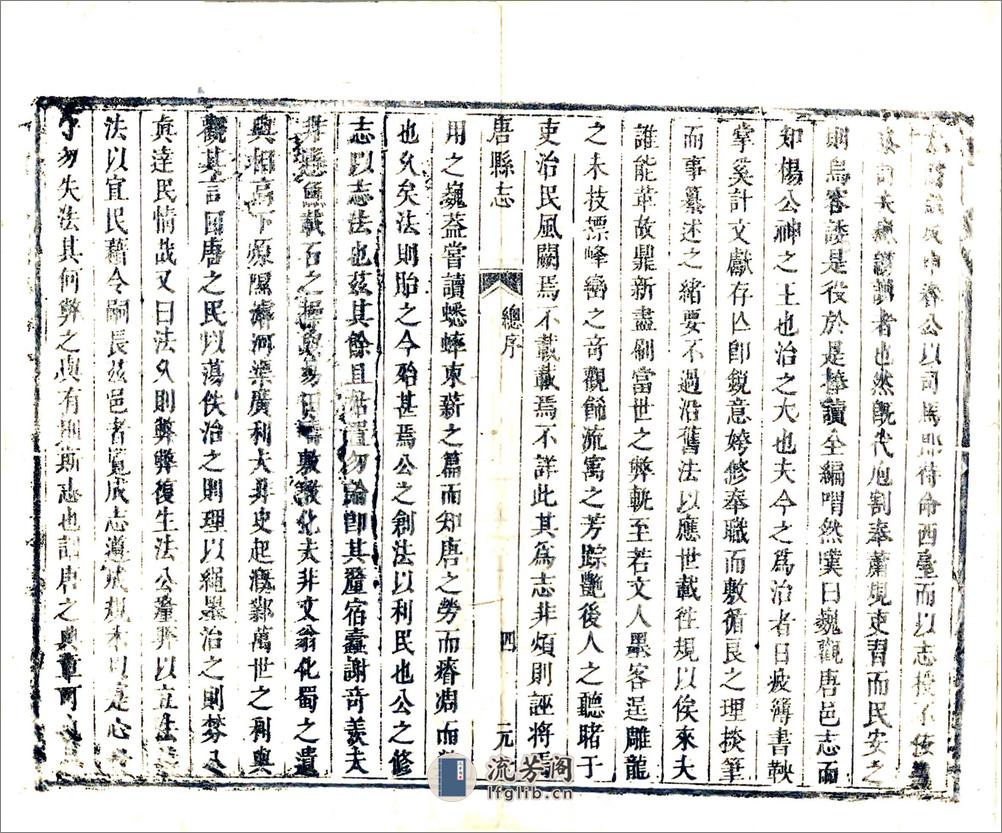 公以司馬郎待命西臺而以志授
者也然旣代庖割奉蕭規吏習而民安之
則烏容諉是役於是捧讀全編喟然嘆曰巍觀唐邑志而
知楊公神之王也治之大也夫今之爲治者日疲簿書鞅
掌奚計文獻存亾卽銳意姱修奉職而敷循良之理掞筆
而事纂述之緒要不過沿舊法以應世載徃規以俟來夫
誰能革故鼎新盡刷當世之弊軌至若文人墨客逞雕龍
之末技摽峰巒之奇觀餙流寓之芳踪艷後人之聽睹于
吏治民風闕焉不載載焉不詳此其爲志非煩則誣將焉
唐縣志
總序
四
元
用之巍葢嘗讀蟋蟀束薪之篇而知唐之勞而瘠凋而
也乆矣法則貽之今殆甚焉公之創法以利民也公之修
志以志法也茲其餘且姑置勿論卽其釐宿蠧謝奇羨夫
非懸魚載石之操與易田疇敷敎化夫非文翁化蜀之遺
與相高下原隰濬河渠廣利夫非史起溉鄴萬世之利與
觀其言曰唐之民以蕩佚治之則理以繩墨治之則棼
眞達民情哉又曰法乆則弊弊復生法公釐弊以立法
法以宜民藉令嗣長茲邑者覽成志遵成規本以是心
守勿失法其何弊之與有則斯志也謂唐之典章可
流芳阁
lfglib.cn